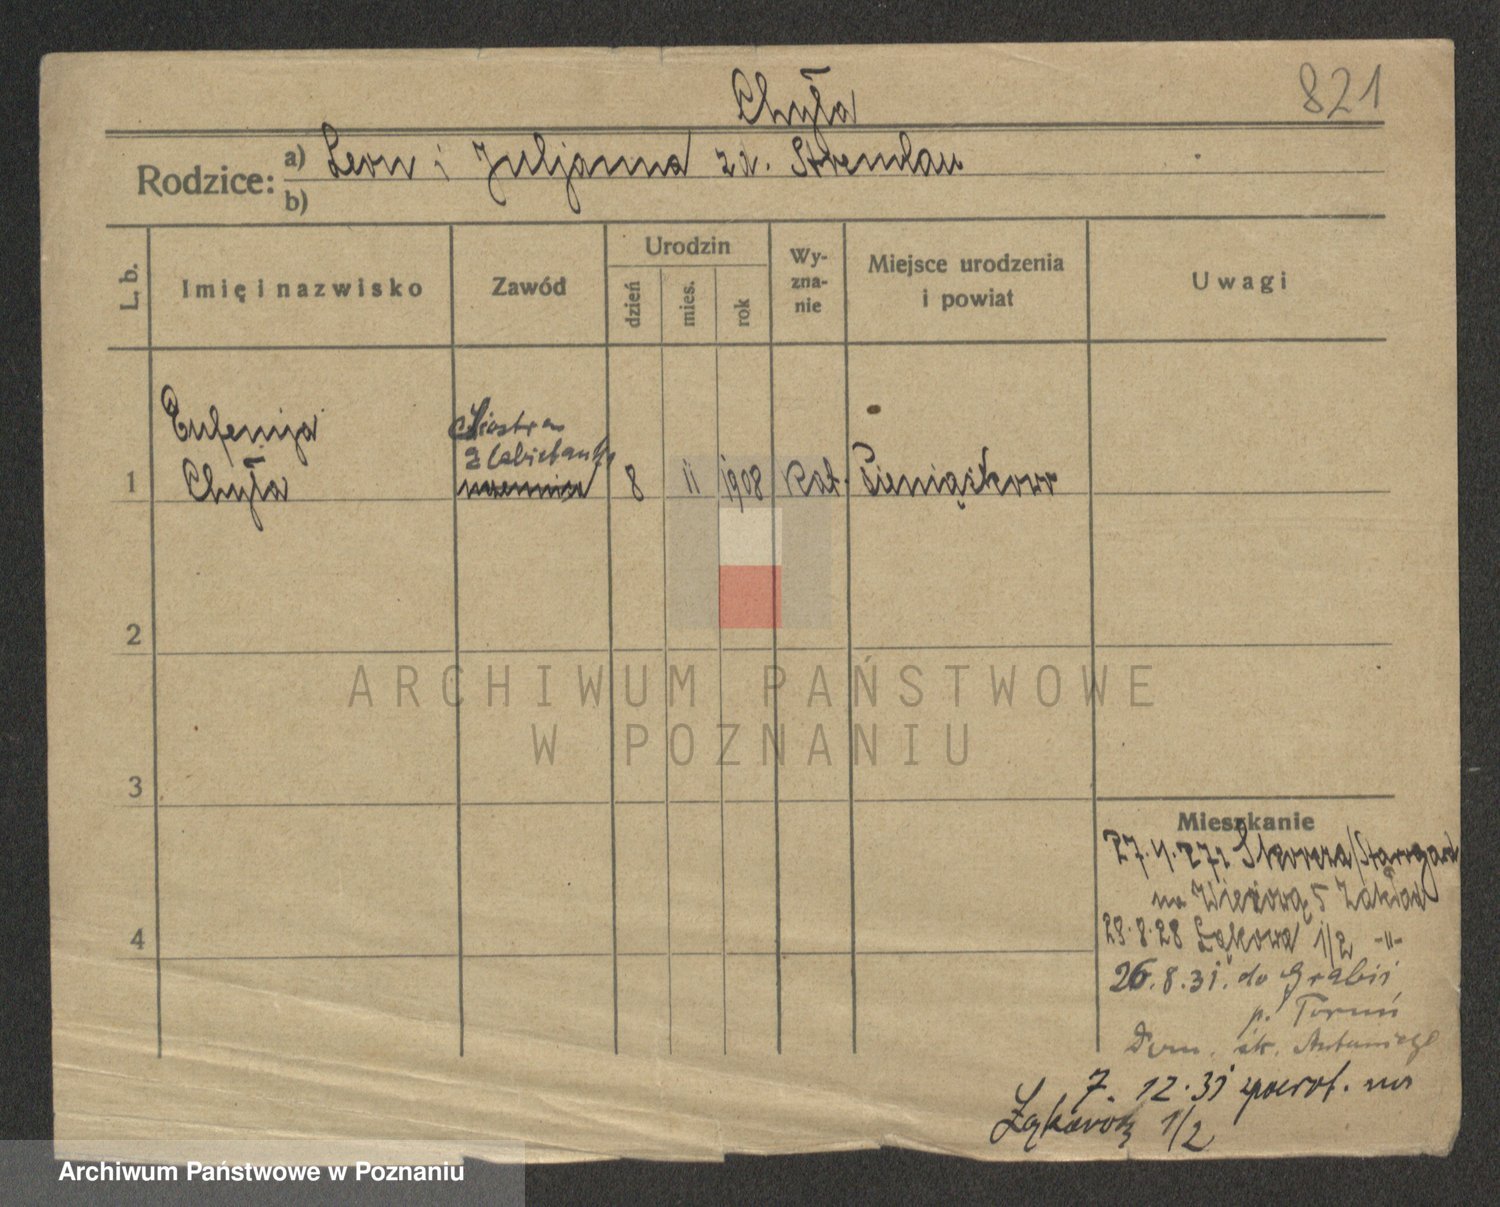 Chyła
821
Rodzice:
a) Leon i Juljanna zd. Stremlau
b)
L. b.
Imię i nazwisko
Zawód
Urodzin
dzień
mies.
rok
Wy-
zna-
nie
Miejsce urodzenia
i powiat
Uwagi
Eufemja
Siostra
Elżbietanka
1 Chyła
8 11 1908 kat. Pieniążkowo
2
ARCHIWUM PAŃSTWOWE
W POZNANIU
3
Mieszkanie
27.4.27 z Skorcza/Starogard
na Wieżową 5 Zakład
4
28.8.28 Łąkowa 1/2 -"-
26.8.31. do Grabii
p. Toruń
Dom. św. Antoniego
7. 12.31 zpowrot. na
Łąkową 1/2
Archiwum Państwowe w Poznaniu